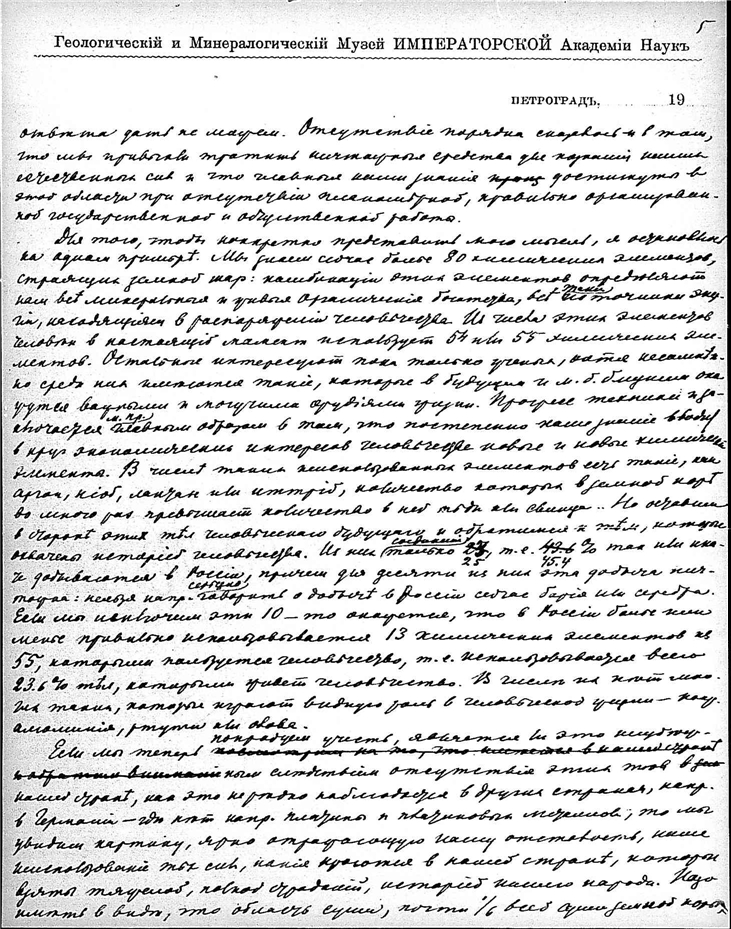 5
Геологическій и Минералогическій Музей ИМПЕРАТОРСКОЙ Академіи Наукъ
ПЕТРОГРАДЪ, 19
отвѣта дать не можем. Отсутствіе порядка сказалось и в том,
что мы привыкли тратить ничтожныя средства для изученія наших
естественных сил и что главныя наши знанія достигнуты в
этой области при отсутствіи планомѣрной, правильно организован-
ной государственной и общественной работы.
Для того, чтобы конкретно представить мою мысль, я остановлюсь
на одном примѣрѣ. Мы знаем сейчас более 80 химических элементов,
строящих земной шар: комбинаціи этих элементов определяют
нам всѣ минеральныя и живыя органическія богатства, всѣ источники энер-
гіи, находящіяся в распоряженіи человѣчества. Из числа этих элементов
человѣк в настоящій момент использует 54 или 55 химических эле-
ментов. Остальные интересуют пока только ученых, хотя несомнѣн-
но среди них имѣются такіе, которые в будущем и м. б. близком ока-
жутся важными и могучими орудіями жизни. Прогресс техники за-
ключается м. пр. главным образом в том, что постепенно наше знаніе вводит
в круг экономических интересов человѣчества новые и новые химическіе
элементы. В числѣ таких неиспользованных элементов есть такіе, как
аргон, ніоб, лантан или иттрій, количество которых в земной корѣ
во много раз превышает количество в ней мѣди или свинца.. Но оставим
в сторонѣ этих тѣл человѣческаго будущаго и обратимся к тѣм, которые
охвачены исторіей человѣчества. Из них только 25, т.е. 45.4 % так или ина-
че добываются в Россіи, причем для десяти из них эта добыча нич-
тожна: нельзя напр. серьезно говорить о добычѣ в Россіи сейчас барія или серебра.
Если мы исключим эти 10 – то окажется, что в Россіи более или
менѣе правильно использовывается 13 химических элементов из
55, которыми пользуется человѣчество, т.е. использовывается всего
23.6 % тѣл, которыми живет человѣчество. В числѣ их нѣт мно-
гих таких, которые играют видную роль в человѣческой жизни – напр.
алюминія, ртути или олова.
Если мы теперь попробуем учесть, является ли это неизбѣж-
ным слѣдствіем отсутствія этих тѣл в
нашей странѣ, как это нерѣдко наблюдается в других странах, напр.
в Германіи – гдѣ нѣт напр. платины и платиновых металлов; то мы
увидим картину, ярко отражающую нашу отсталость, наше
неиспользованіе тѣх сил, какія кроются в нашей странѣ, которыя
взяты тяжелой, полной страданій, исторіей нашего народа. Надо
имѣть в виду, что область суши, почти 1/6 всей суши земной коры